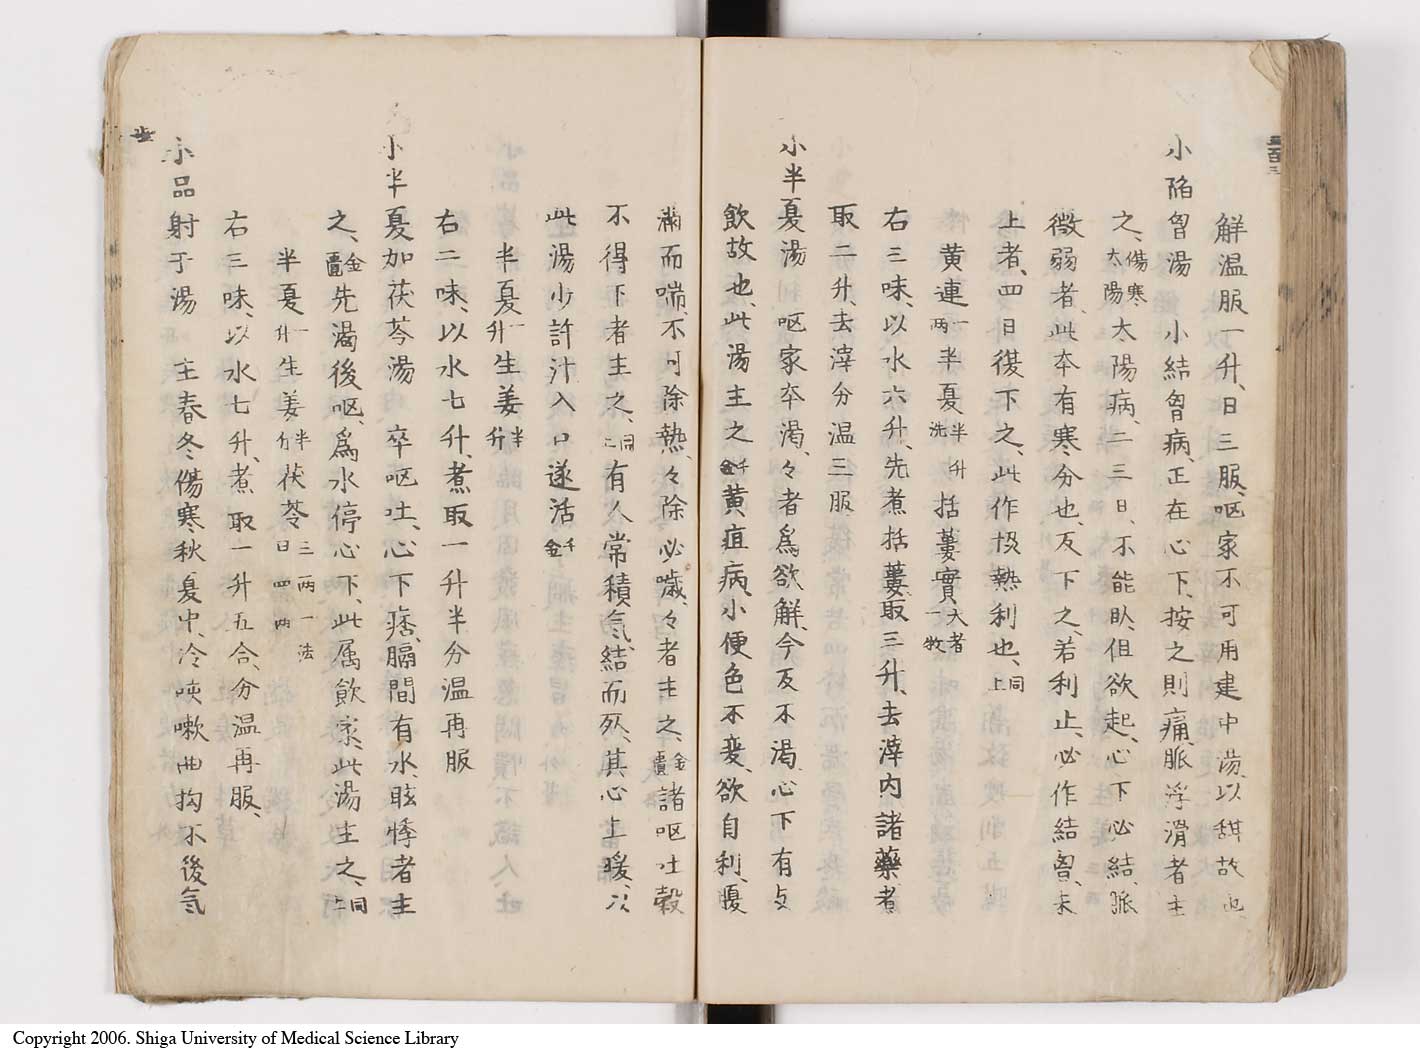 解温服一升、日三服、呕家不可用建中湯、以甜故也
小陷胷湯　小結胷病、正在心下、按之則痛、脈浮滑者主
之、傷寒太陽 太陽病、二三日、不能臥、但欲起、心下必結、脈
微弱者、此本有寒分也、反下之、若利止、必作結胷、未
上者、四日復下之、此作恊熱利也、同上
黄連一两 半夏半升洗 括蔞實大者一枚
右三味、以水六升、先煮括蔞取三升、去滓内諸藥煮
取二升、去滓分温三服
小半夏湯　呕家本渴、々者為欲解、今反不渴、心下有支
飲故也、此湯主之千金 黄疸病、小便色不变、欲自利、腹
滿而喘、不可除熱、々除必噦、々者主之、金匱 諸呕吐穀
不得下者主之、同上 有人常積気、結而死、其心上暖、以
此湯少許汁入口遂活千金
半夏一升 生姜半斤
右二味、以水七升、煮取一升半分温再服
小半夏加茯苓湯　卒呕吐、心下痞、膈間有水、眩悸者主
之、金匱 先渴後呕、為水停心下、此属飲家、此湯主之、同上
半夏一升 生姜半斤 茯苓三两一法曰四两
右三味、以水七升、煮取一升五合、分温再服、
小品射干湯　主春冬傷寒秋夏中、冷咳嗽曲拘不後気